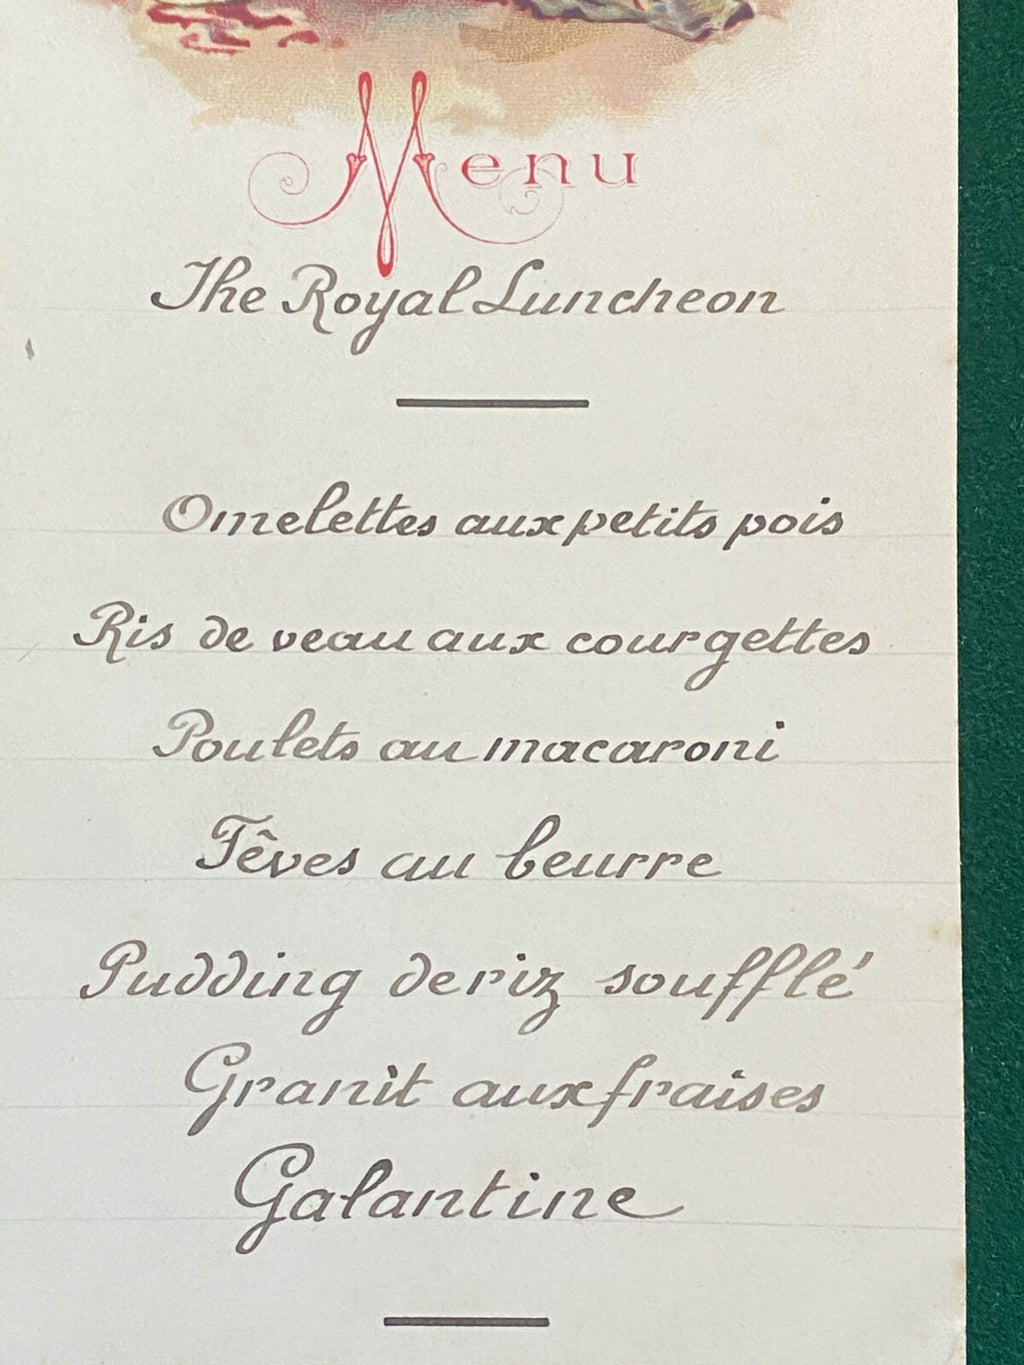 Menu
The Royal Luncheon
Omelettes aux petits pois
Ris de veau aux courgettes
Poulets au macaroni
Fêves au beurre
Pudding de riz soufflé
Granit aux fraises
Galantine